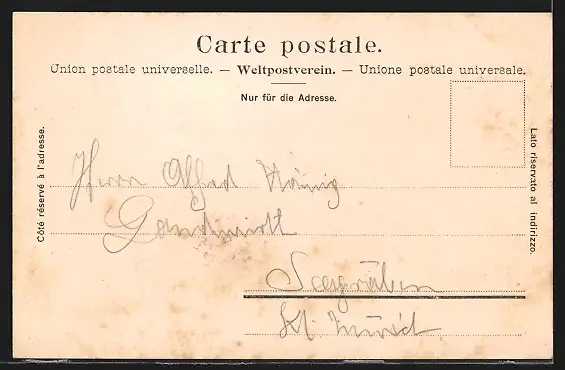 Carte postale.
Union postale universelle. — Weltpostverein. — Unione postale universale.
Nur für die Adresse.
Côté réservé à l'adresse.
Lato riservato al indirizzo.
Herrn Alfred Hönig
Landwirth
Seegräben
Kt. Zürich.